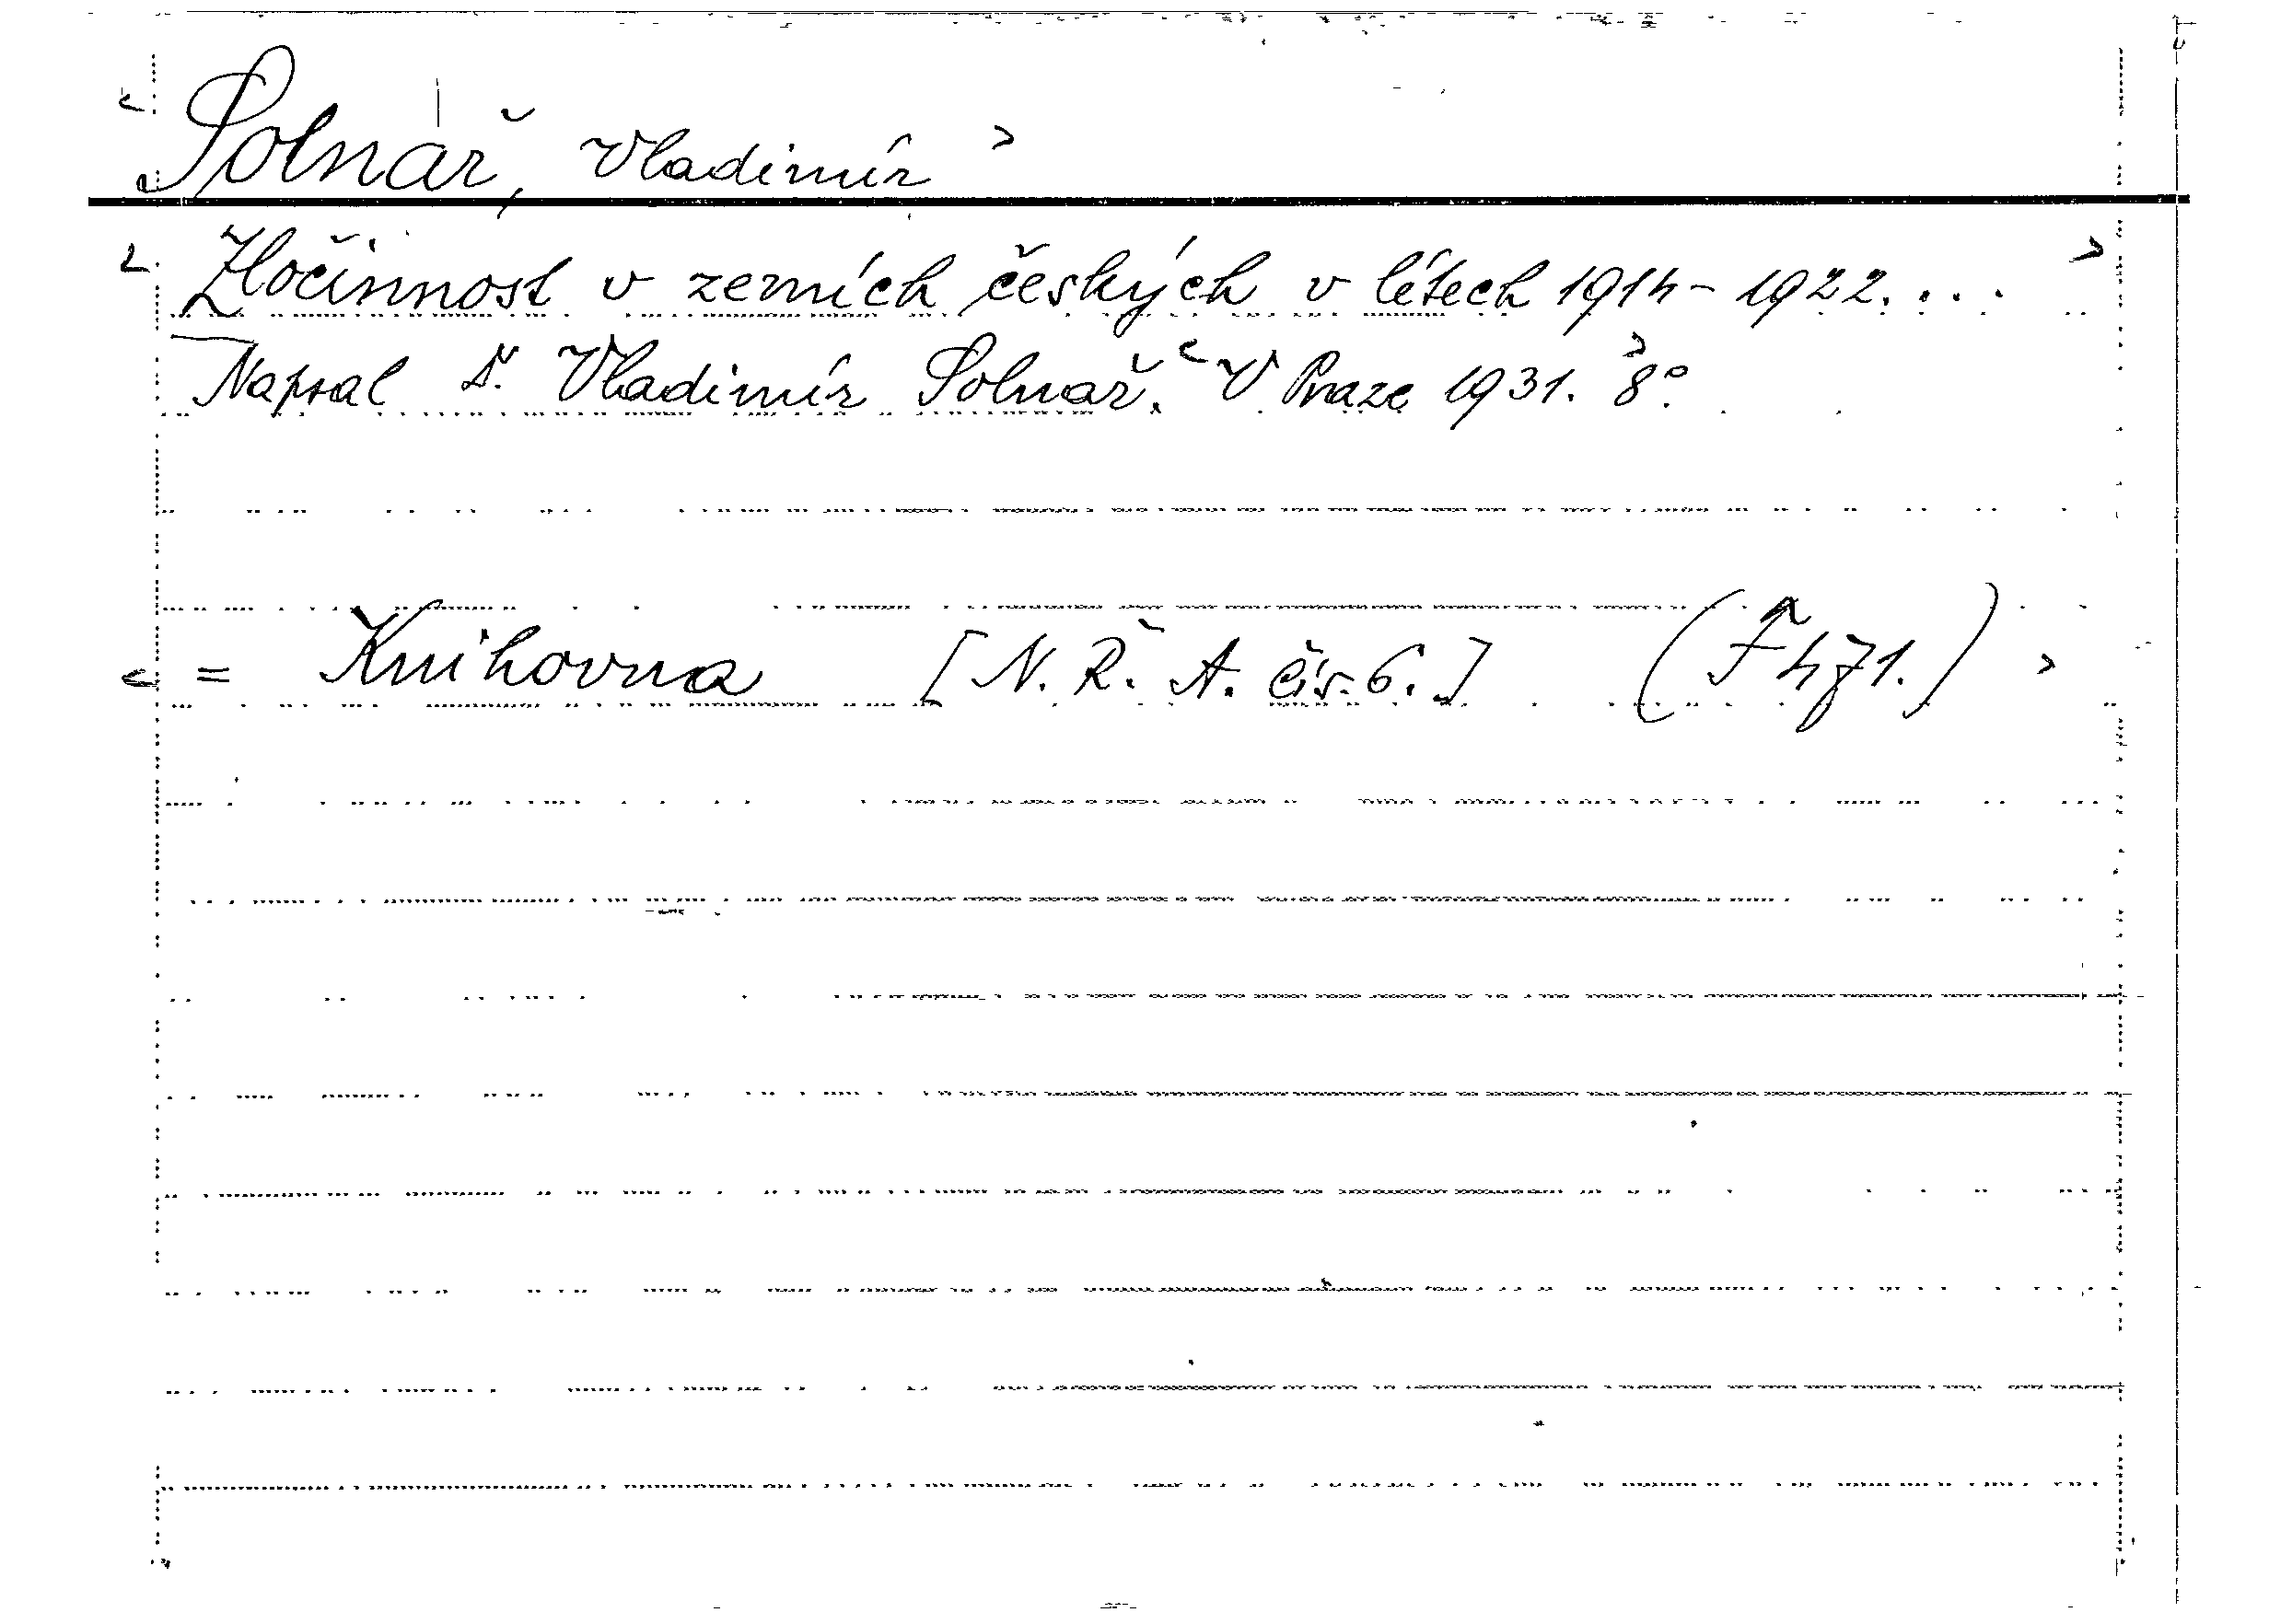 Solnář, Vladimír
Zločinnost v zemích českých v létech 1914-1922. ...
Napsal Dr. Vladimír Solnař. V Praze 1931. 8°.
= Knihovna [N. Ř. A. čís. 6.] (F 471.)